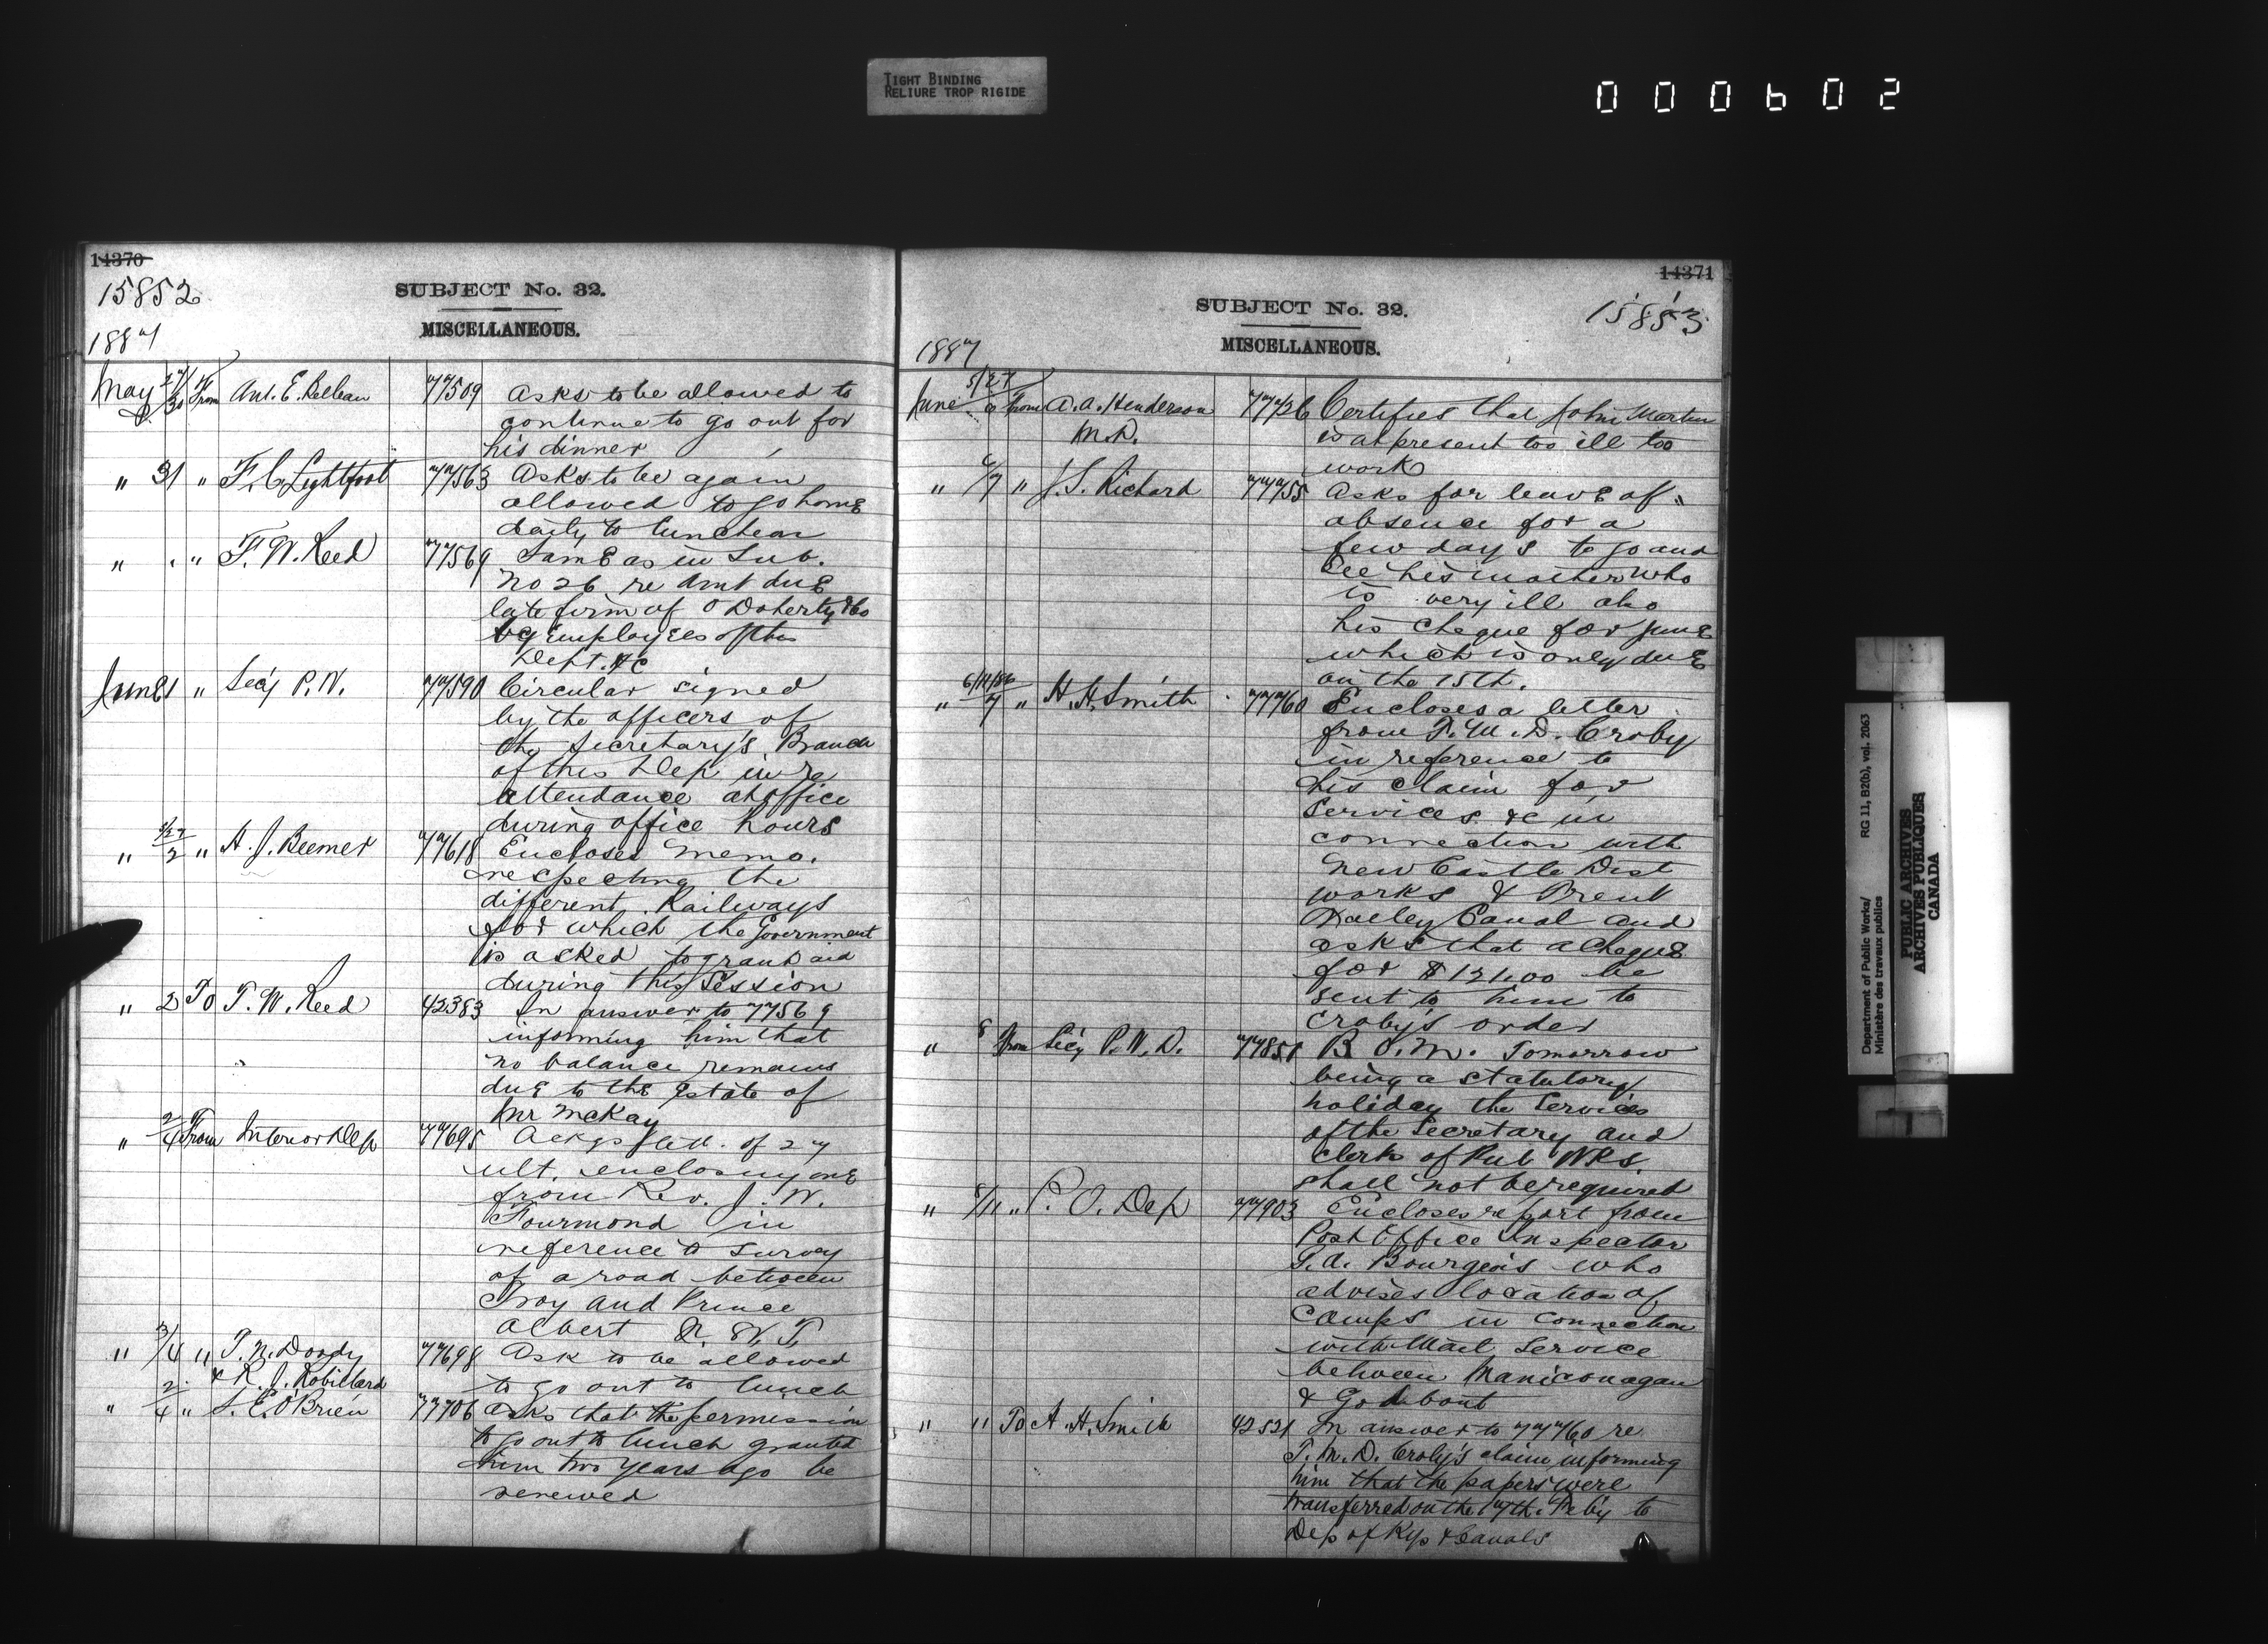 TIGHT BINDING
RELIURE TROP RIGIDE
000602
14370
15852
SUBJECT No. 32.
MISCELLANEOUS.
1887
May 27/30 From Ant. E. 77509 Asks to be allowed to
continue to go out for
his dinner
" 31 " F. C. Lightfoot 77563 Asks to be again
allowed to go home
daily to luncheon
" " " F. W. Reed 77569 Same as in Sub.
No 26 re Amt due
late firm of O'Doherty & Co
by Employees of this
Dept. &c
June 1 " Sec'y P. W. 77590 Circular signed
by the officers of
the Secretary's Branch
of this Dep in re
attendance at office
during office hours
" 5/27/2 " H. J. Beemer 77618 Encloses memo.
respecting the
different Railways
for which the Government
is asked to grant aid
during this Session
" 2 To F. W. Reed 42383 In answer to 77569
informing him that
no balance remains
due to the Estate of
Mr McKay
" 2/4 From Interior Dep 77695 Ackgs lett. of 27
ult. enclosing one
from Rev. J. W.
Fourmond in
reference to survey
of a road between
Troy and Prince
Albert N. W. T.
" 3/4 " T. N. Doody 77698 Ask to be allowed
& R. J. Robillard to go out to lunch
" 2/4 " S. E. O'Brien 77706 asks that the permission
to go out to lunch granted
him two years ago be
renewed
14371
15853
SUBJECT No. 32.
MISCELLANEOUS.
1887
June 5/27/6 From A. A. Henderson 77726 Certifies that John Martin
M.D. is at present too ill too
work
" 6/7 " J. S. Richard 77755 Asks for leave of
absence for a
few days to go and
see his mother who
is very ill also
his cheque for June
which is only due
on the 15th.
" 6/11/86/7 " H. H. Smith 77760 Encloses a letter
from T. M. D. Croby
in reference to
his claim for
Services &c in
connection with
New Castle Dist
works & Trent
Valley Canal and
asks that a cheque
for $121.00 be
sent to him to
Croby's order
" 8 From Sec'y P. W. D. 77851 B O. M. Tomorrow
being a statutory
holiday the Services
of the Secretary and
Clerk of Pub WKS.
shall not be required
" 8/11 " P. O. Dep 77903 Encloses report from
Post Office Inspector
Bourgeois who
advises location of
Camps in connection
with Mail Service
between Maniconagan
& Godbout
" " To A. H. Smith 42521 In answer to 77760 re
T. M. D. Croby's claim informing
him that the papers were
transferred on the 17th. Feb'y to
Dep of Rys & Canals
Department of Public Works/ RG 11, B2(b), vol. 2063
Ministère des travaux publics
PUBLIC ARCHIVES
ARCHIVES PUBLIQUES
CANADA